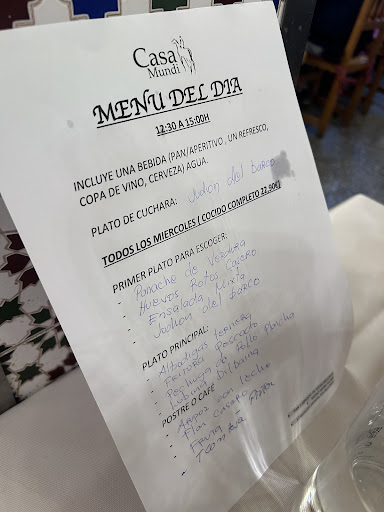 Casa
Mundi
MENU DEL DIA
12:30 A 15:00H
INCLUYE UNA BEBIDA (PAN/APERITIVO , UN REFRESCO,
COPA DE VINO, CERVEZA) AGUA.
PLATO DE CUCHARA: Judion del barco
TODOS LOS MIERCOLES ( COCIDO COMPLETO
PRIMER PLATO PARA ESCOGER:
- Panache de Verdura
- Huevos Rotos Casero
- Ensalada Mixta
- Judion del barco
PLATO PRINCIPAL:
- Albondigas ternera
- Fritura Pescado
- Pechuga de Pollo Plancha
- Lubina Bilbaina
POSTRE O CAFÉ
- Arroz con leche
- Flan casero
- Fruta
-
-